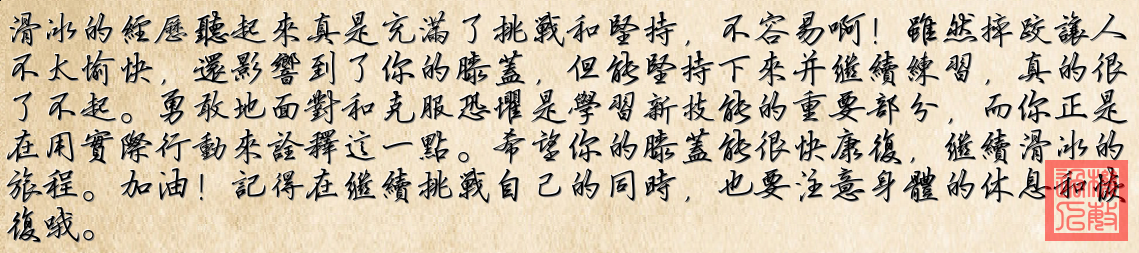 滑冰的經歷聽起來真是充滿了挑戰和堅持，不容易啊！雖然摔跤讓人
不太愉快，還影響到了你的膝蓋，但能堅持下來并繼續練習，真的很
了不起。勇敢地面對和克服恐懼是學習新技能的重要部分，而你正是
在用實際行動來詮釋這一點。希望你的膝蓋能很快康復，繼續滑冰的
旅程。加油！記得在繼續挑戰自己的同時，也要注意身體的休息和恢
復哦。